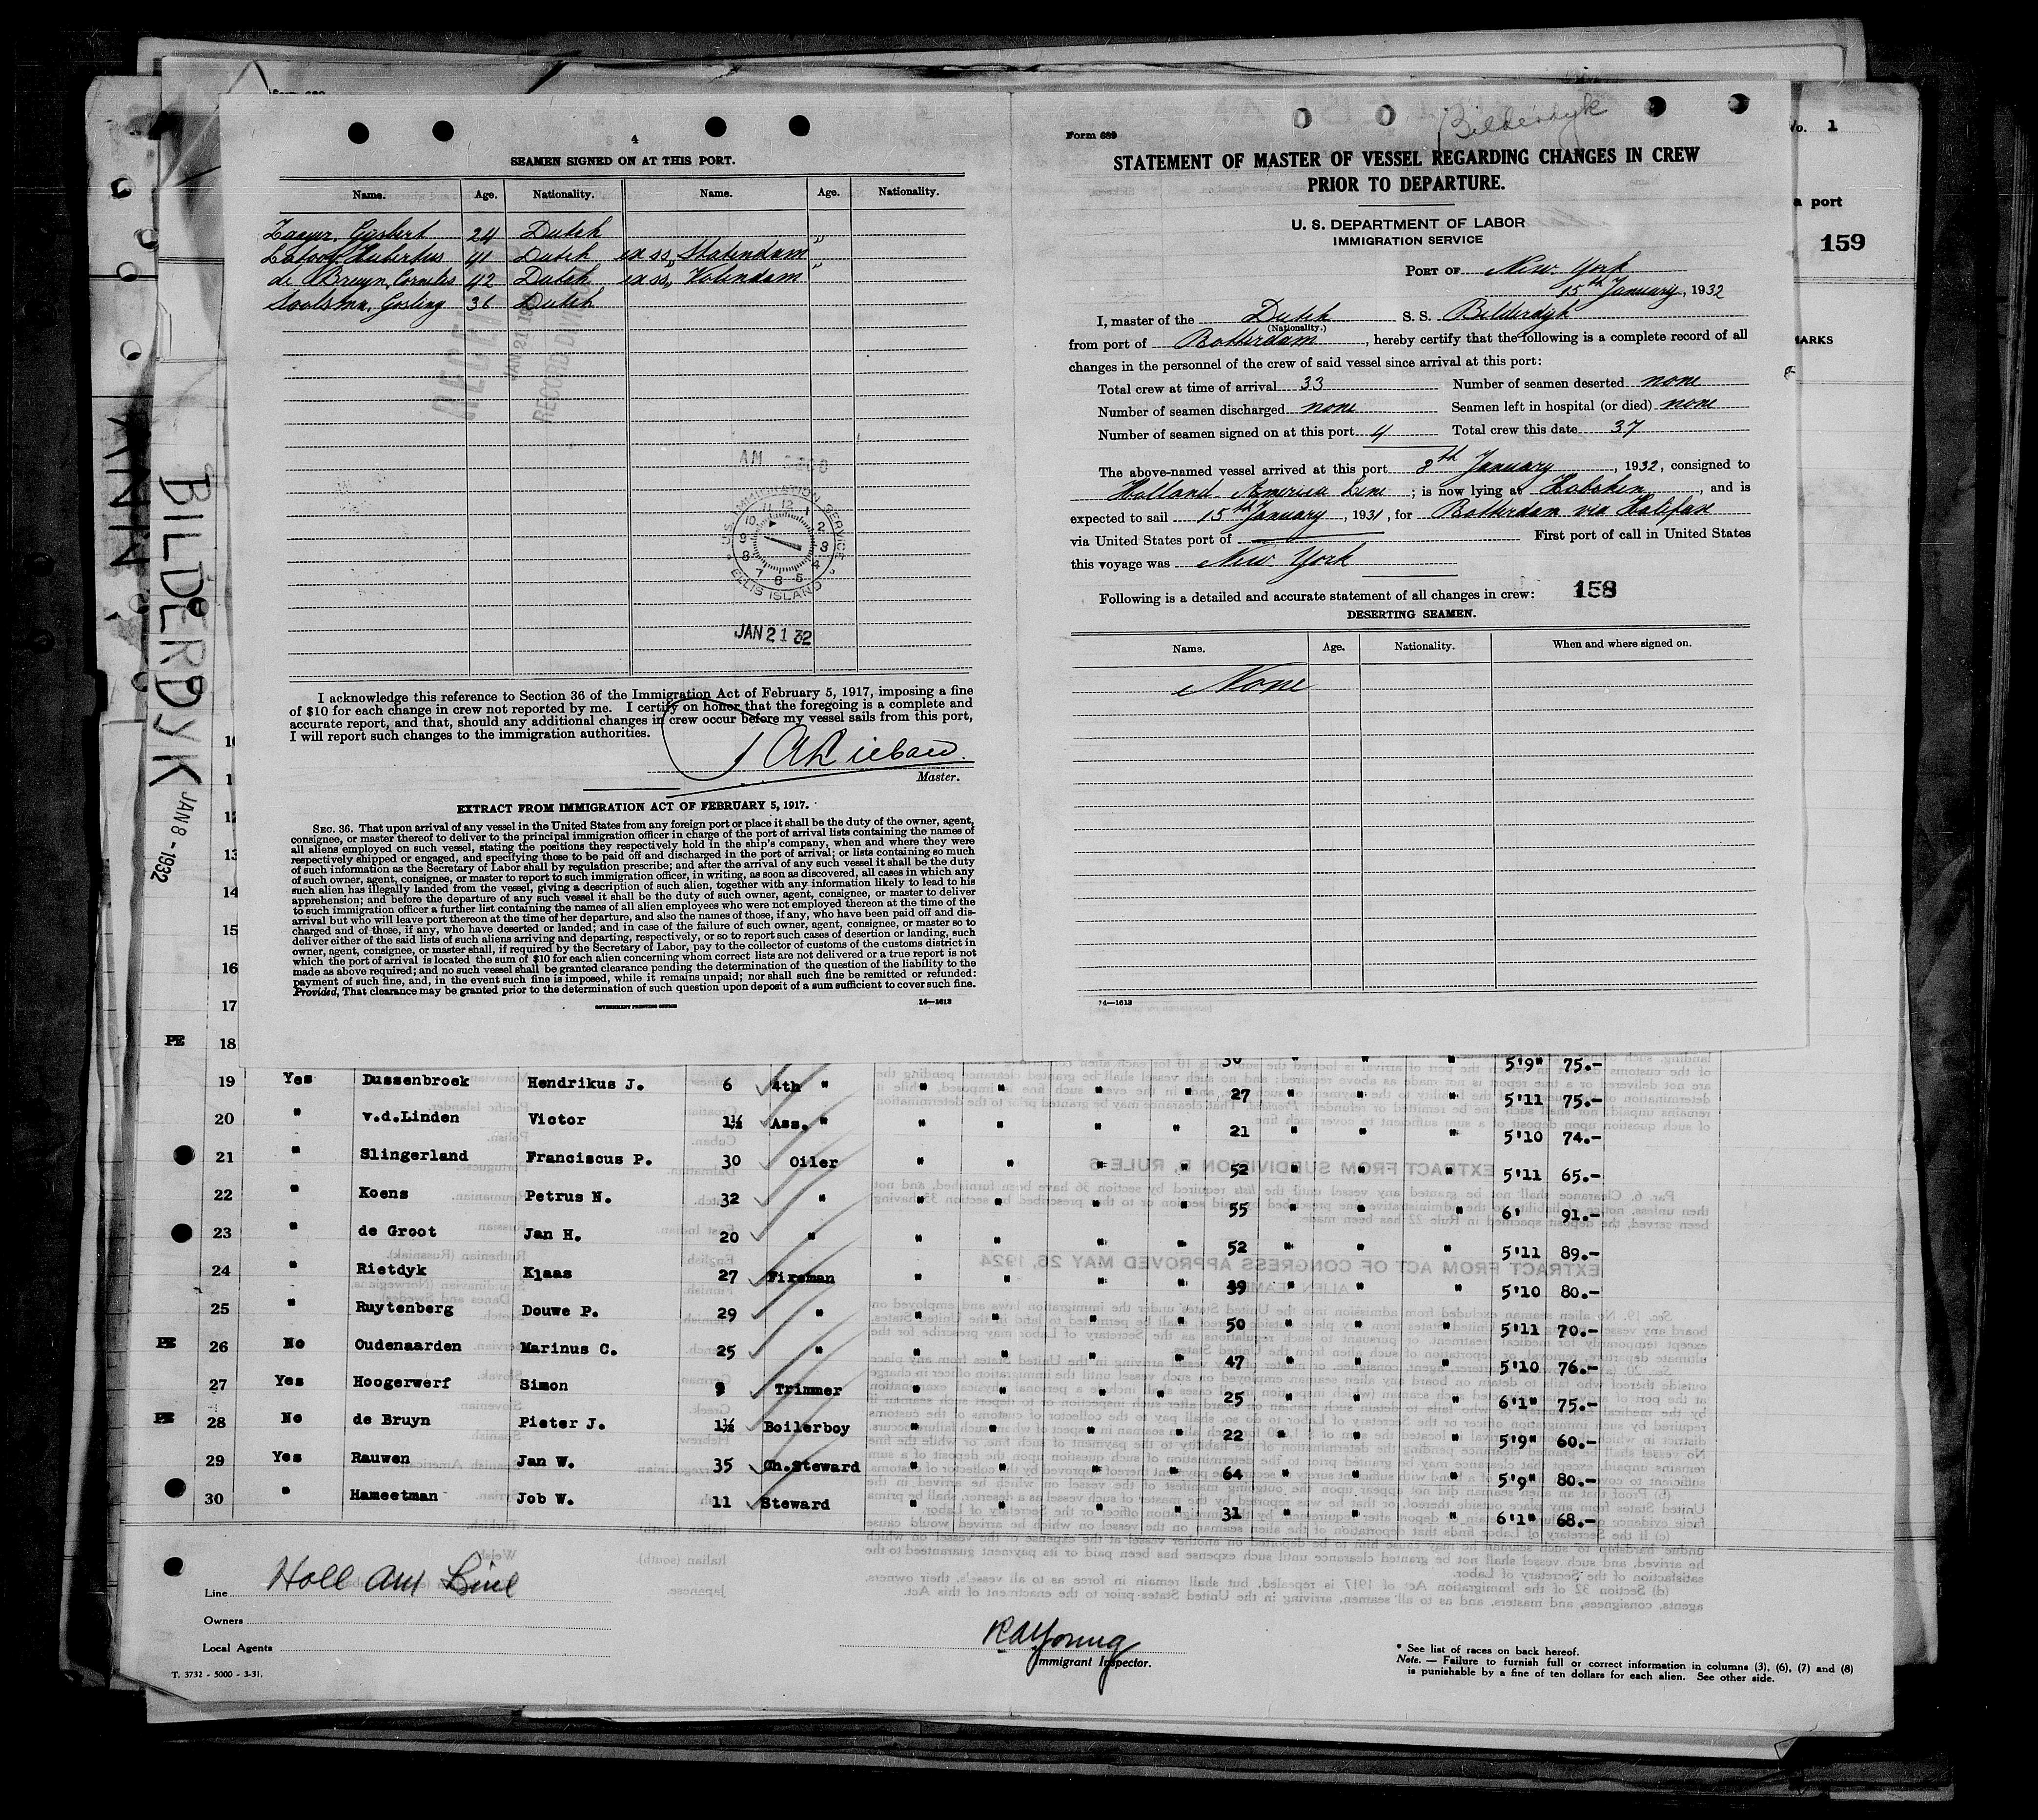 4
SEAMEN SIGNED ON AT THIS PORT.
Name. Age. Nationality. Name. Age. Nationality.
Gysbert 24 Dutch "
Hubertus 41 Dutch ex ss. Statendam "
de Bruyn, Cornelis 42 Dutch ex ss. Volendam "
Gosling 36 Dutch
JAN 21
RECORD DIVISION
AM
U.S. IMMIGRATION SERVICE
ELLIS ISLAND
JAN 21 32
I acknowledge this reference to Section 36 of the Immigration Act of February 5, 1917, imposing a fine
of $10 for each change in crew not reported by me. I certify on honor that the foregoing is a complete and
accurate report, and that, should any additional changes in crew occur before my vessel sails from this port,
I will report such changes to the immigration authorities.
Master.
EXTRACT FROM IMMIGRATION ACT OF FEBRUARY 5, 1917.
SEC. 36. That upon arrival of any vessel in the United States from any foreign port or place it shall be the duty of the owner, agent,
consignee, or master thereof to deliver to the principal immigration officer in charge of the port of arrival lists containing the names of
all aliens employed on such vessel, stating the positions they respectively hold in the ship's company, when and where they were
respectively shipped or engaged, and specifying those to be paid off and discharged in the port of arrival; or lists containing so much
of such information as the Secretary of Labor shall by regulation prescribe; and after the arrival of any such vessel it shall be the duty
of such owner, agent, consignee, or master to report to such immigration officer, in writing, as soon as discovered, all cases in which any
such alien has illegally landed from the vessel, giving a description of such alien, together with any information likely to lead to his
apprehension; and before the departure of any such vessel it shall be the duty of such owner, agent, consignee, or master to deliver
to such immigration officer a further list containing the names of all alien employees who were not employed thereon at the time of the
arrival but who will leave port thereon at the time of her departure, and also the names of those, if any, who have been paid off and dis-
charged and of those, if any, who have deserted or landed; and in case of the failure of such owner, agent, consignee, or master so to
deliver either of the said lists of such aliens arriving and departing, respectively, or so to report such cases of desertion or landing, such
owner, agent, consignee, or master shall, if required by the Secretary of Labor, pay to the collector of customs of the customs district in
which the port of arrival is located the sum of $10 for each alien concerning whom correct lists are not delivered or a true report is not
made as above required; and no such vessel shall be granted clearance pending the determination of the question of the liability to the
payment of such fine, and, in the event such fine is imposed, while it remains unpaid; nor shall such fine be remitted or refunded:
Provided, That clearance may be granted prior to the determination of such question upon deposit of a sum sufficient to cover such fine.
GOVERNMENT PRINTING OFFICE 14—1613
Bilderdyk
Form 689
STATEMENT OF MASTER OF VESSEL REGARDING CHANGES IN CREW
PRIOR TO DEPARTURE.
U. S. DEPARTMENT OF LABOR
IMMIGRATION SERVICE
PORT OF New York
15th January, 1932
I, master of the Dutch S. S. Bilderdyk
(Nationality.)
from port of Rotterdam, hereby certify that the following is a complete record of all
changes in the personnel of the crew of said vessel since arrival at this port:
Total crew at time of arrival 33 Number of seamen deserted none
Number of seamen discharged none Seamen left in hospital (or died) none
Number of seamen signed on at this port 4 Total crew this date 37
The above-named vessel arrived at this port 8th January, 1932, consigned to
Holland America Line; is now lying at Hoboken, and is
expected to sail 15th January, 1931, for Rotterdam via Halifax
via United States port of First port of call in United States
this voyage was New York
Following is a detailed and accurate statement of all changes in crew: 158
DESERTING SEAMEN.
Name. Age. Nationality. When and where signed on.
None
14—1613
No. 1
a port
159
BILDERDYK JAN 8 - 1932
13
14
15
16
17
PE 18 " " " 5'9" 75.-
19 Yes Dussenbroek Hendrikus J. 6 4th " " " " " 27 " " " 5'11 75.-
20 " v.d.Linden Victor 1½ Ass. " " " " " 21 " " " 5'10 74.-
21 " Slingerland Franciscus P. 30 Oiler " " " " 52 " " " 5'11 65.-
22 " Koens Petrus N. 32 " " " " " 55 " " " 6' 91.-
23 " de Groot Jan H. 20 " " " " " 52 " " " 5'11 89.-
24 " Rietdyk Klaas 27 Fireman " " " " 39 " " " 5'10 80.-
25 " Ruytenberg Douwe P. 29 " " " " " 50 " " " 5'11 70.-
PE 26 No Oudenaarden Marinus C. 25 " " " " " 47 " " " 5'10 76.-
27 Yes Hoogerwerf Simon 9 Trimmer " " " " 25 " " " 6'1" 75.-
PE 28 No de Bruyn Pieter J. 1½ Boilerboy " " " " 22 " " " 5'9" 60.-
29 Yes Rauwen Jan W. 35 Ch.Steward " " " " 64 " " " 5'9" 80.-
30 " Hameetman Job W. 11 Steward " " " " 31 " " " 6'1" 68.-
Line Holl Am Line
Owners
Local Agents
T. 3732 - 5000 - 3-31.
R A Young
Immigrant Inspector.
* See list of races on back hereof.
Note. — Failure to furnish full or correct information in columns (3), (6), (7) and (8)
is punishable by a fine of ten dollars for each alien. See other side.